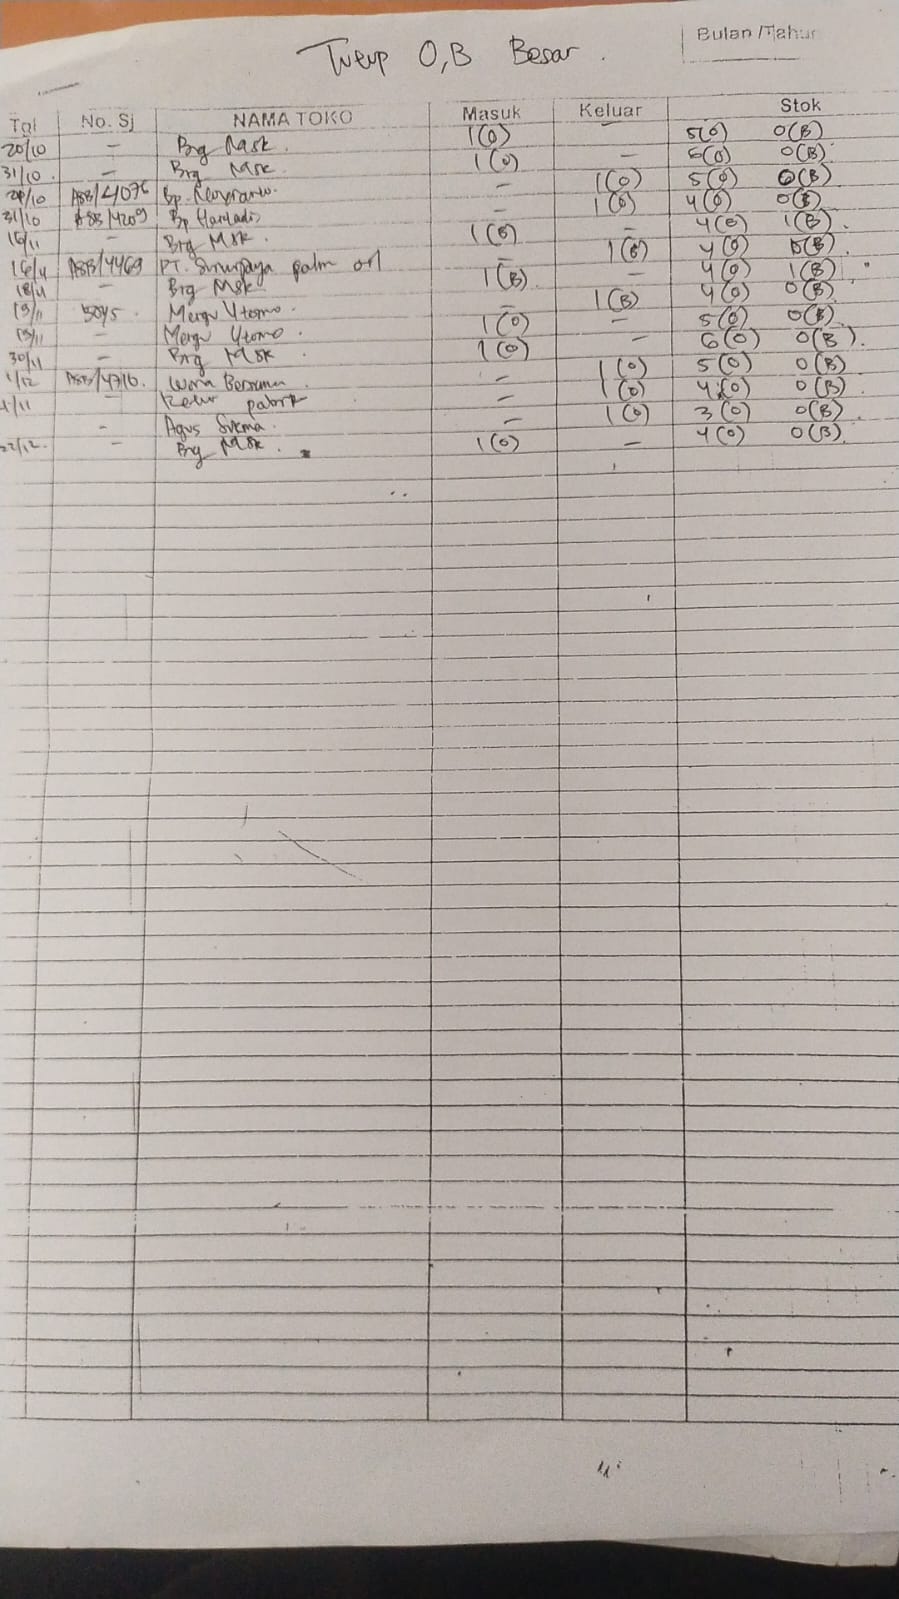 O,B Besar.
Bulan/Tahun
Tgl No. Sj NAMA TOKO Masuk Keluar Stok
20/10 - Brg Mask. 1(O) 5(O) 0(B)
31/10. - Brg Msk. 1(O) - 6(O) 0(B)
/10 ASB/4076 Bp. - 1(O) 5(O) 0(B)
31/10 ASB/4209 Bp Haryadi - 1(O) 4(O) 0(B)
16/11 - Brg Msk. 1(B) - 4(O) 1(B).
16/11 ASB/4469 PT. palm oil - 1(B) 4(O) 0(B)
18/11 - Brg Msk 1(B) - 4(O) 1(B)
19/11 5045. Mergu Utomo. - 1(B) 4(O) 0(B)
19/11 - Mergu Utomo. 1(O) - 5(O) 0(B)
30/11 - Brg Msk 1(O) - 6(O) 0(B).
1/12 ASB/4716. Warna Bersama - 1(O) 5(O) 0(B)
/11 - Retur pabrik - 1(O) 4(O) 0(B)
- Agus Sukma. - 1(O) 3(O) 0(B)
22/12. - Brg Msk. 1(O) - 4(O) 0(B)